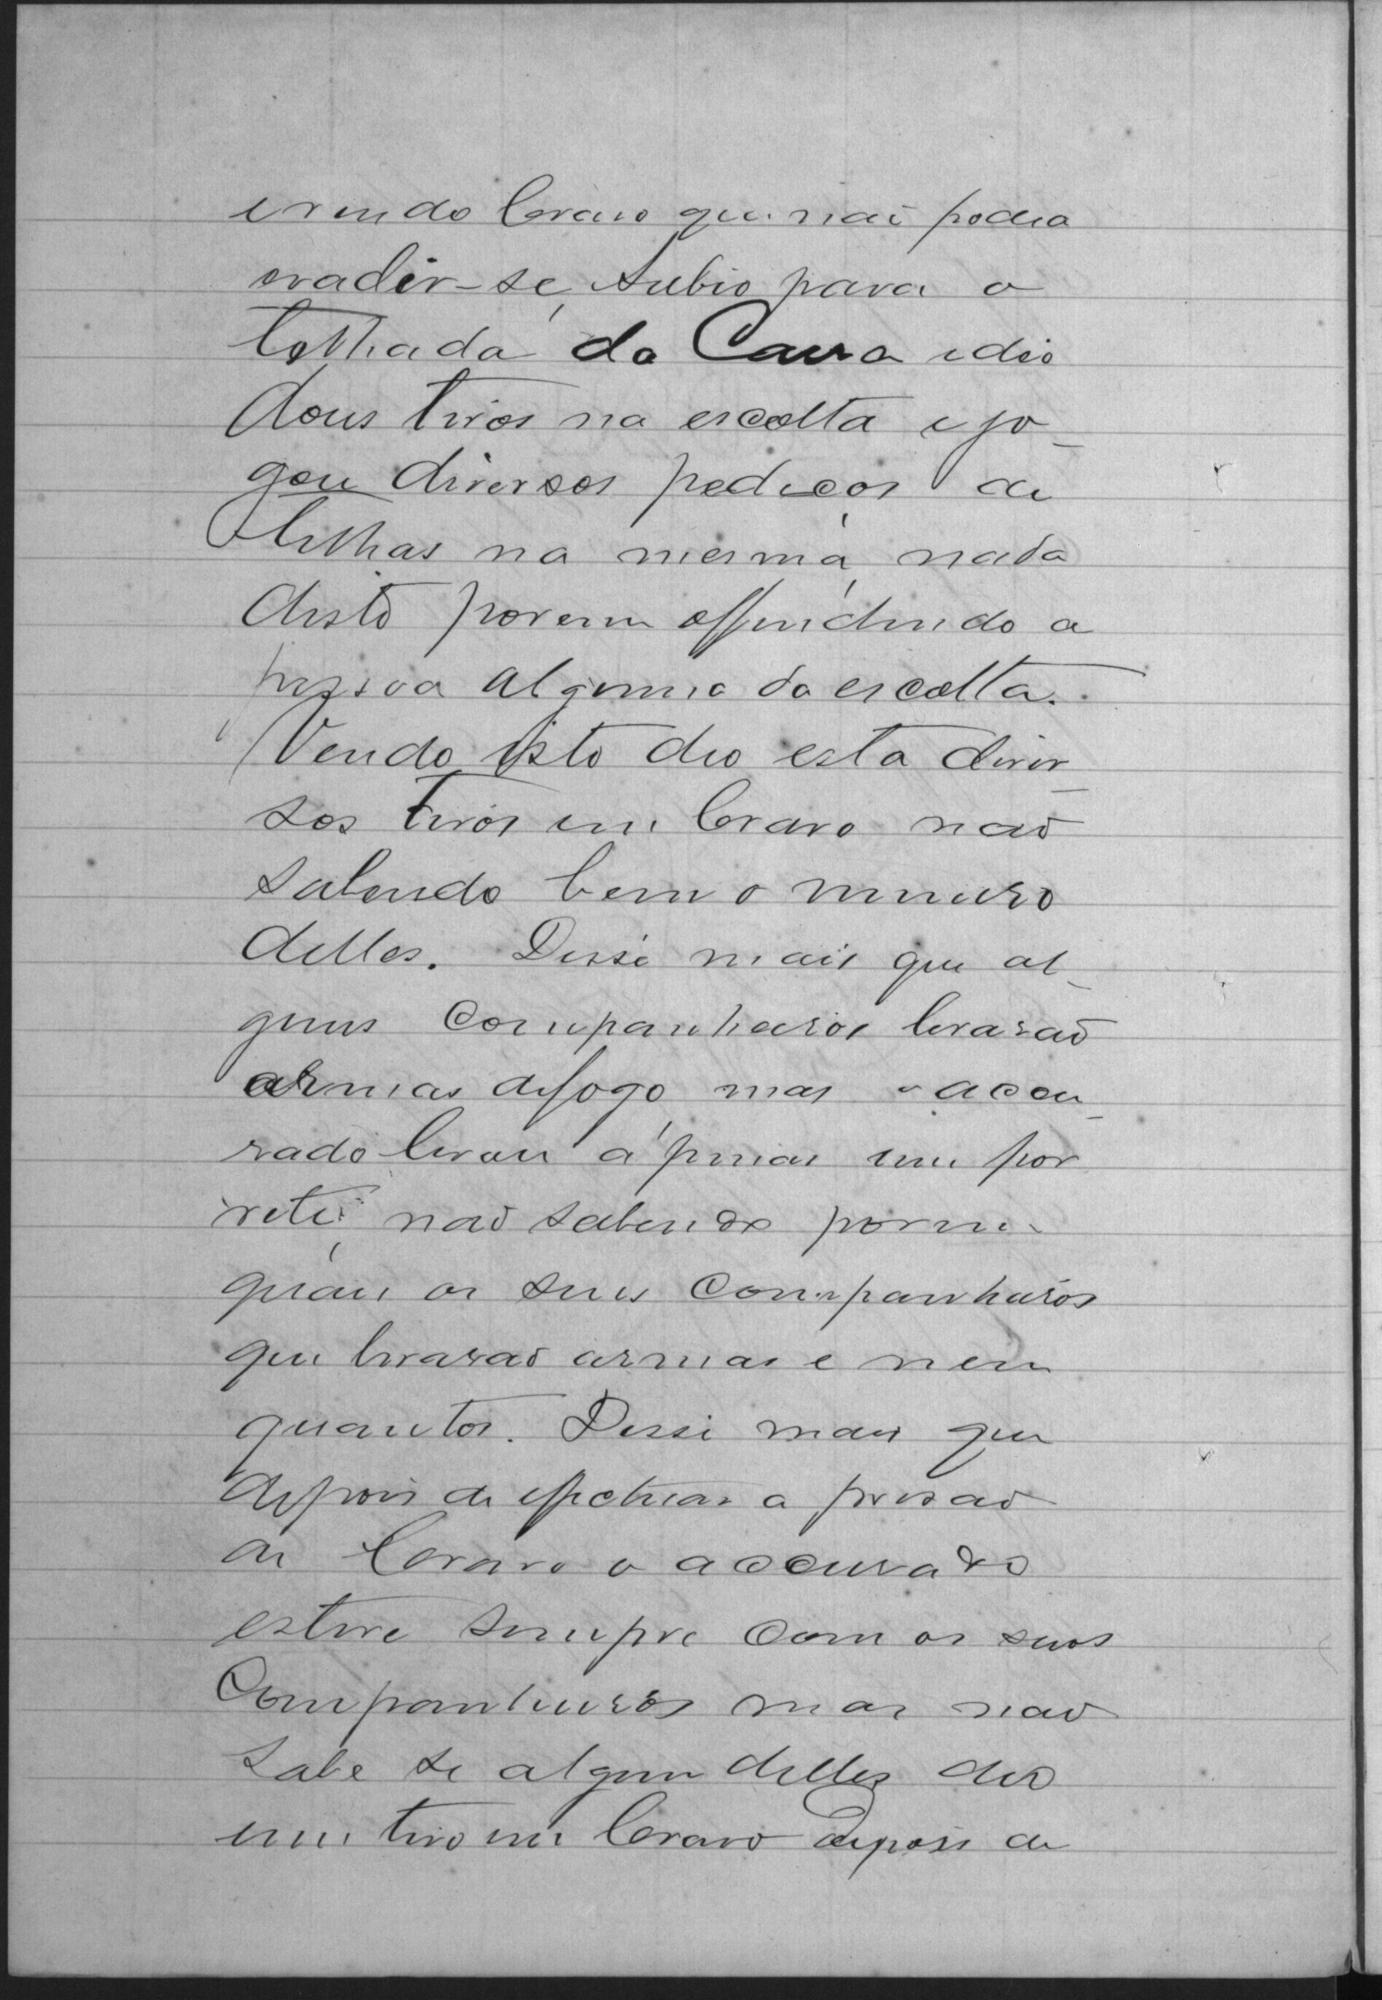 e vendo Cravo que não podia
evadir-se, subio para o
telhado da Casa e dio
dous tiros na escolta e jo-
gou diversos pedaços de
telhas na mesma, nada
disto porem offendendo a
pessoa alguma da escolta.
Vendo isto deo esta diver-
sos tiros em Cravo não
sabendo bem o numero
delles. Disse mais que al-
guns companheiros levarão
armas de fogo mas o accu-
sado levou apenas um por
rete, não sabendo porem
quaes os seus companheiros
que levarão armas e nem
quantos. Disse mais que
depois de effectuar a prisão
de Cravo o accusado
esteve sempre com os seus
Companheiros mas não
sabe se algum delles deo
um tiro em Cravo depois de